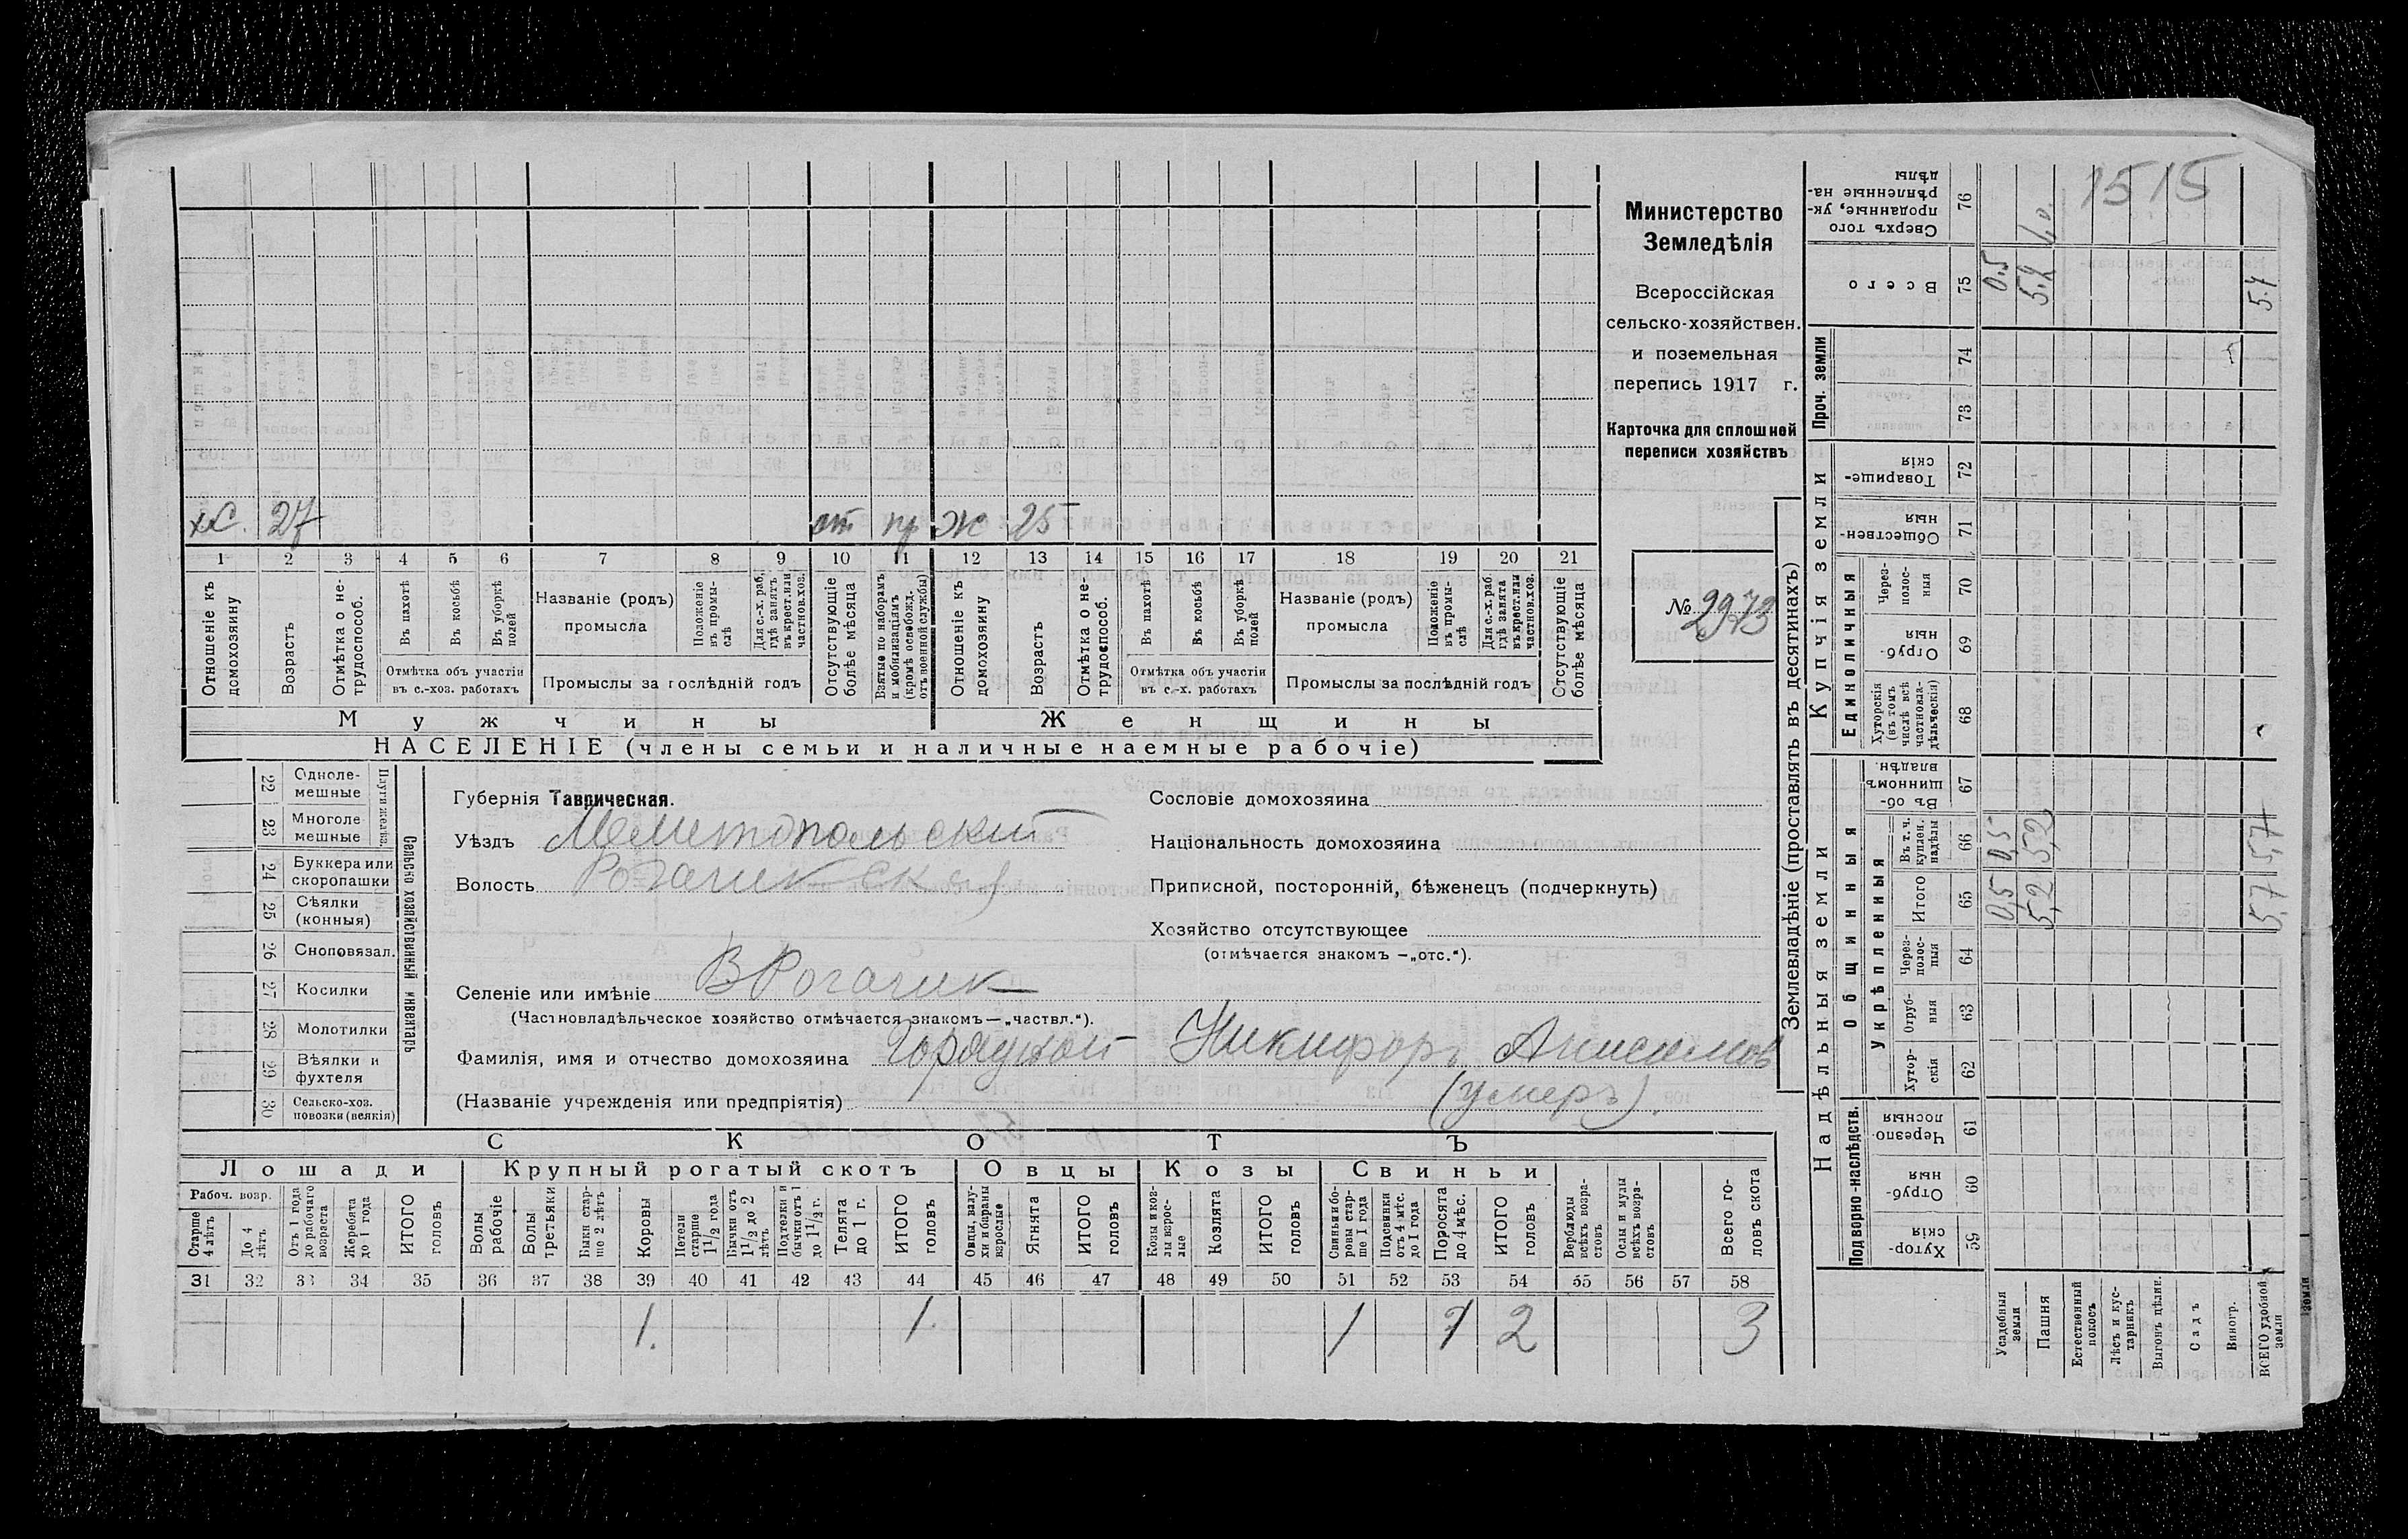 1515
Министерство
Земледѣлія
Всероссійская
сельско-хозяйствен.
и поземельная
перепись 1917 г.
Карточка для сплошной
переписи хозяйствъ
№ 2973
х. 27 от пр ж 25
1 2 3 4 5 6 7 8 9 10 11 12 13 14 15 16 17 18 19 20 21
Отношеніе къ домохозяину
Возрастъ
Отмѣтка о не-трудоспособ.
Въ пахотѣ
Въ косьбѣ
Въ уборкѣ полей
Отмѣтка объ участіи
въ с.-хоз. работахъ
Названіе (родъ)
промысла
Положеніе въ промы-слѣ
Для с.-х. раб. гдѣ занятъ въ крест. или частнов. хоз.
Промыслы за послѣдній годъ
Отсутствующіе болѣе мѣсяца
Взятые по наборамъ и мобилизаціямъ (кромѣ освобожд. отъ военной службы)
Отношеніе къ домохозяину
Возрастъ
Отмѣтка о не-трудоспособ.
Въ пахотѣ
Въ косьбѣ
Въ уборкѣ полей
Отмѣтка объ участіи
въ с.-х. работахъ
Названіе (родъ)
промысла
Положеніе въ промы-слѣ
Для с.-х. раб. гдѣ занята въ крест. или частнов. хоз.
Промыслы за послѣдній годъ
Отсутствующіе болѣе мѣсяца
Мужчины Женщины
НАСЕЛЕНІЕ (члены семьи и наличные наемные рабочіе)
Сельско хозяйственный инвентарь
22 Одноле-мешные
23 Многоле мешные
24 Буккера или скоропашки
25 Сѣялки (конныя)
26 Сноповязал.
27 Косилки
28 Молотилки
29 Вѣялки и фухтеля
30 Сельско-хоз. повозки (всякія)
Губернія Таврическая.
Уѣздъ Мелитопольский
Волость Рогачикская
Селеніе или имѣніе В Рогачик
(Частновладѣльческое хозяйство отмѣчается знакомъ—„частвл.“).
Фамилія, имя и отчество домохозяина Никифоръ Анисимов
(Названіе учрежденія или предпріятія) (умеръ).
Сословіе домохозяина
Національность домохозяина
Приписной, посторонній, бѣженецъ (подчеркнуть)
Хозяйство отсутствующее
(отмѣчается знакомъ —„отс.“).
СКОТЪ
Лошади Крупный рогатый скотъ Овцы Козы Свиньи
Рабоч. возр.
Старше 4 лѣтъ
До 4 лѣтъ
Отъ 1 года до рабочаго возраста
Жеребята до 1 года
ИТОГО головъ
Волы рабочіе
Волы третьяки
Быки стар-ше 2 лѣтъ
Коровы
Нетели старше 1½ года
Бычки отъ 1½ до 2 лѣтъ
Подтелки и бычки отъ 1 до 1½ г.
Телята до 1 г.
ИТОГО головъ
Овцы, валу-хи и бараны взрослые
Ягнята
ИТОГО головъ
Козы и коз-лы взрос-лые
Козлята
ИТОГО головъ
Свиньи и бо-ровы стар-ше 1 года
Подсвинки отъ 4 мѣс. до 1 года
Поросята до 4 мѣс.
ИТОГО головъ
Верблюды всѣхъ возра-стовъ
Ослы и мулы всѣхъ возра-стовъ
Всего го-ловъ скота
31 32 33 34 35 36 37 38 39 40 41 42 43 44 45 46 47 48 49 50 51 52 53 54 55 56 57 58
1. 1. 1 1 2 3
Землевладѣніе (проставлять въ десятинахъ)
Надѣльныя земли
Купчія земли
Проч. земли
Подворно-наслѣдств.
Общинныя
Укрѣпленныя
Единоличныя
76 Сверхъ того проданные, ук-рѣпленные на-дѣлы
75 Всего
74
73
72 Товарище-скія
71 Обществен-ныя
70 Через-полос-ныя
69 Отруб-ныя
68 Хуторскія (въ томъ числѣ всѣ частновла-дѣльческія)
67 Въ об-щинномъ владѣн.
66 Въ т. ч. куплен. надѣлы
65 Итого
64 Через-полос-ныя
63 Отруб-ныя
62 Хутор-скія
61 Черезпо-лосныя
60 Отруб-ныя
59 Хутор-скія
Усадебныя земли
Пашня
Естественный покосъ
Лѣсъ и кус-тарникъ
Выгонъ цѣлин.
Садъ
Виногр.
ВСЕГО удобной земли
0,5 5,2 5,7
0,5 5,2 5,7
0,5 5,2 5,7